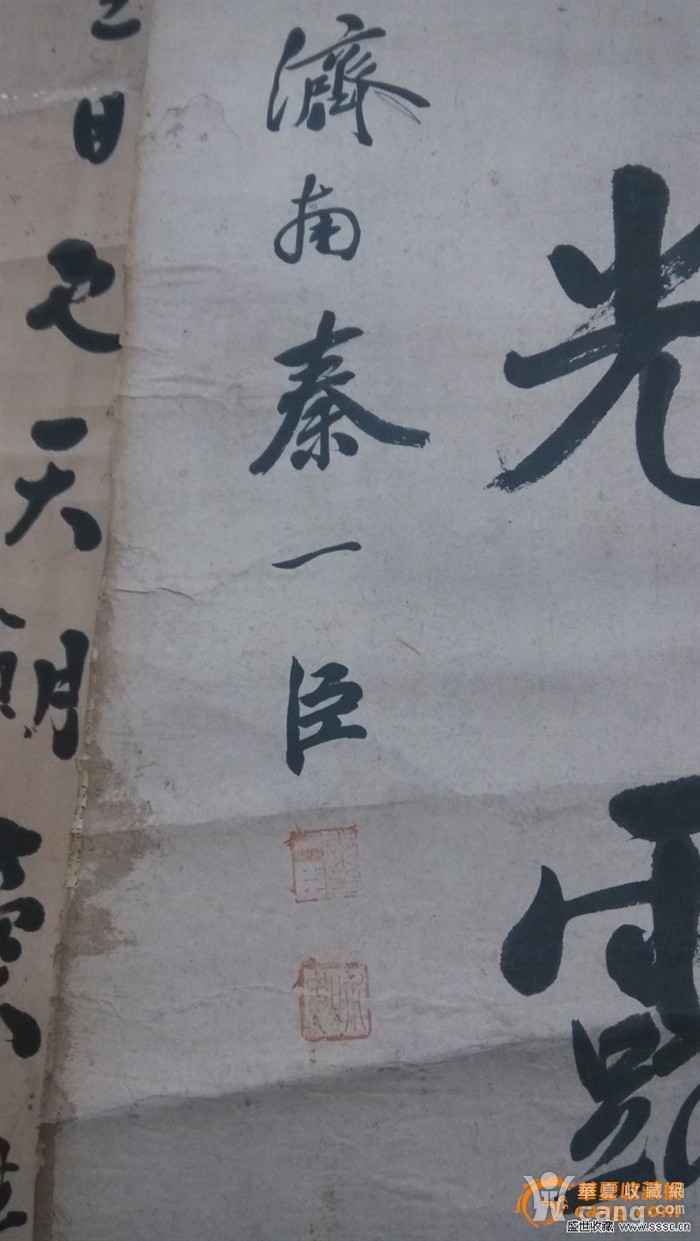 光露
濟南秦一臣
日也天朝
華夏收藏網
cang.com
盛世收藏 www.sssc.cn